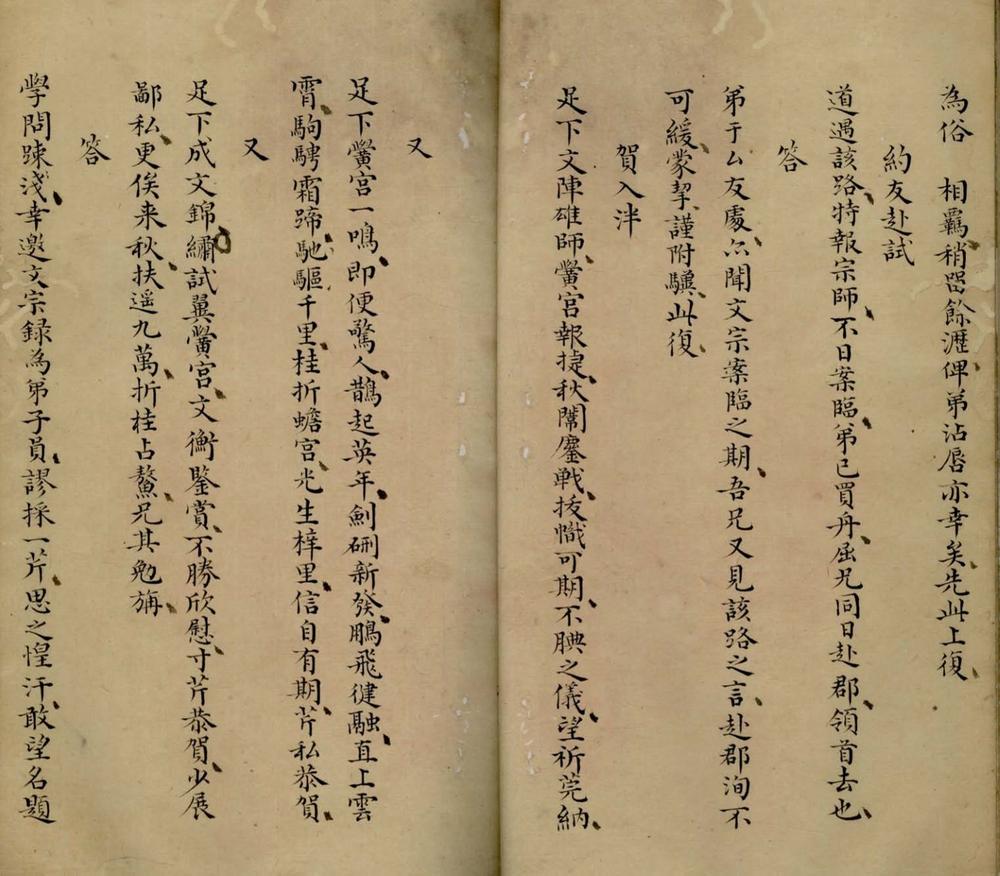 為俗　相羈、稍畱餘瀝俾弟沾唇亦幸矣、先此上復、
約友赴試
道遇該路、特報宗師、不日案臨、弟已買舟、屈兄同日赴郡、領首去也、
答
弟于厶友處、尒聞文宗案臨之期、吾兄又見該路之言、赴郡洵不
可緩、蒙挈、謹附驥、此復、
賀入泮
足下文陣雄師、黌宮報捷、秋闈鏖戰、拔幟可期、不腆之儀、望祈莞納、
又
足下黌宮一鳴、即便驚人、鵲起英年、劍硎新發、鵬飛健融、直上雲
霄、駒騁霜蹄、馳驅千里、桂折蟾宮、光生梓里、信自有期、芹私恭賀、
又
足下成文錦繡、試翼黌宮、文衡鑒賞、不勝欣慰、寸芹恭賀、少展
鄙私、更俟来秋、扶遥九萬、折桂占鰲、兄其勉旃、
答
學問踈淺、幸邀文宗録為弟子員、謬採一芹、思之惶汗、敢望名題